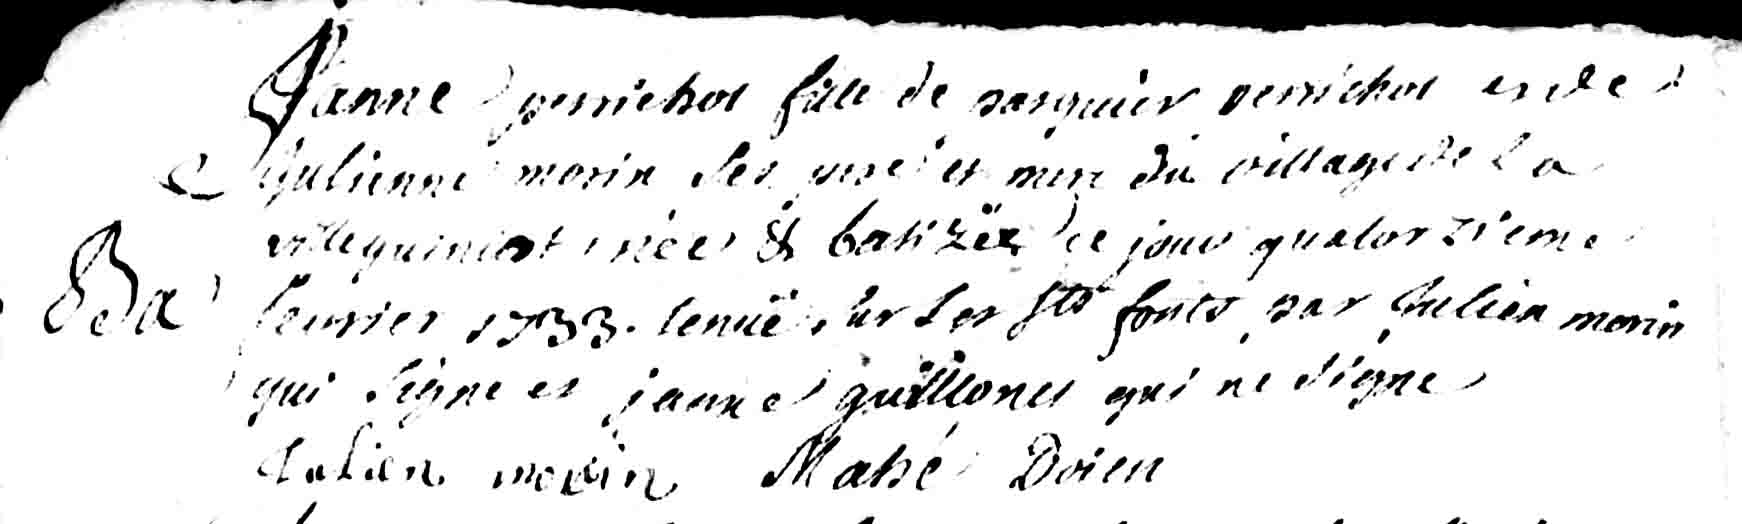 Janne perrichot fille de parquier perrichot et de
Julienne morin ses pere et mere du village de la
villeguiniot née & batizée ce jour quatorzieme
Ba feuvrier 1733. tenuë sur les sts fonts par Julien morin
qui signe et janne guillonet qui ne signe
Julien morin Mahé Doien